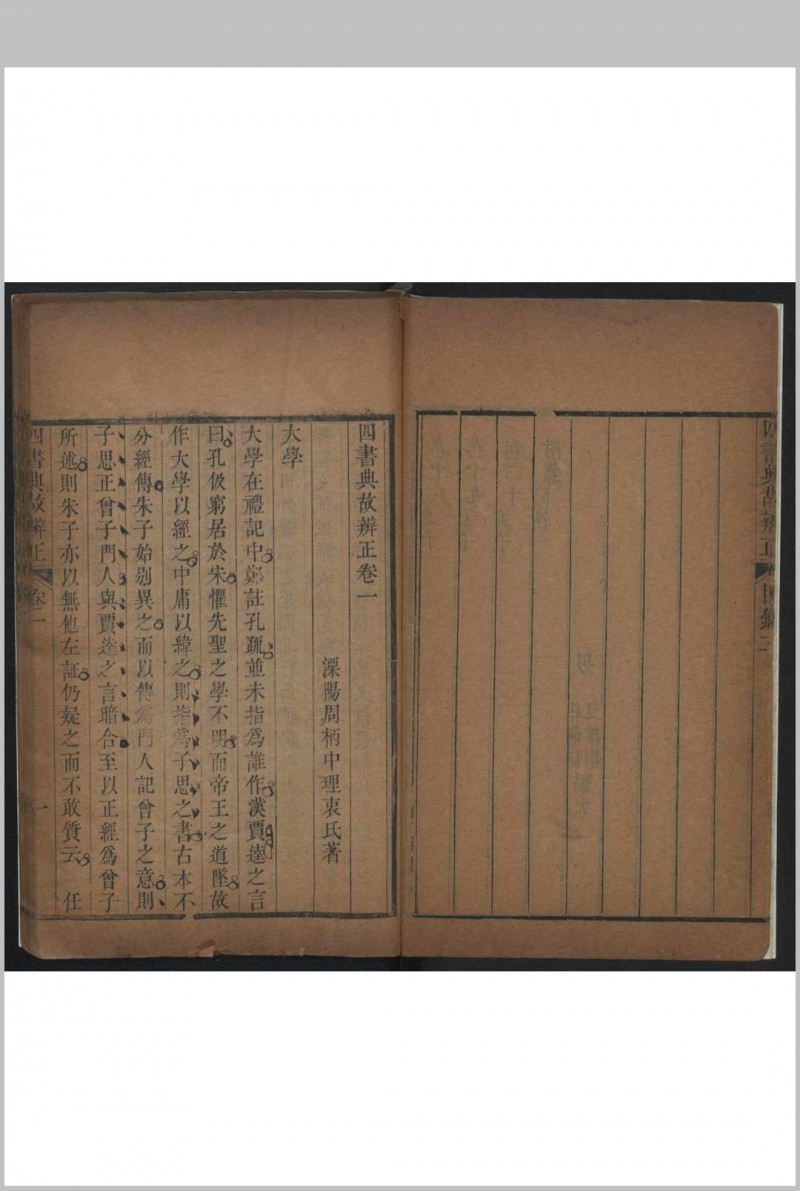 四書典故辨正 目錄 二
四書典故辨正卷一
溧陽周柄中理衷氏著
大學
大學在禮記中鄭註孔疏並未指爲誰作漢賈逵之言
曰孔伋窮居於宋懼先聖之學不明而帝王之道墜故
作大學以經之中庸以緯之則指爲子思之書古本不
分經傳朱子始别異之而以傳爲門人記曾子之意則
子思正曾子門人與賈逵之言暗合至以正經爲曾子
所述則朱子亦以無他左証仍疑之而不敢質云 任
四書典故辨正 卷一 一